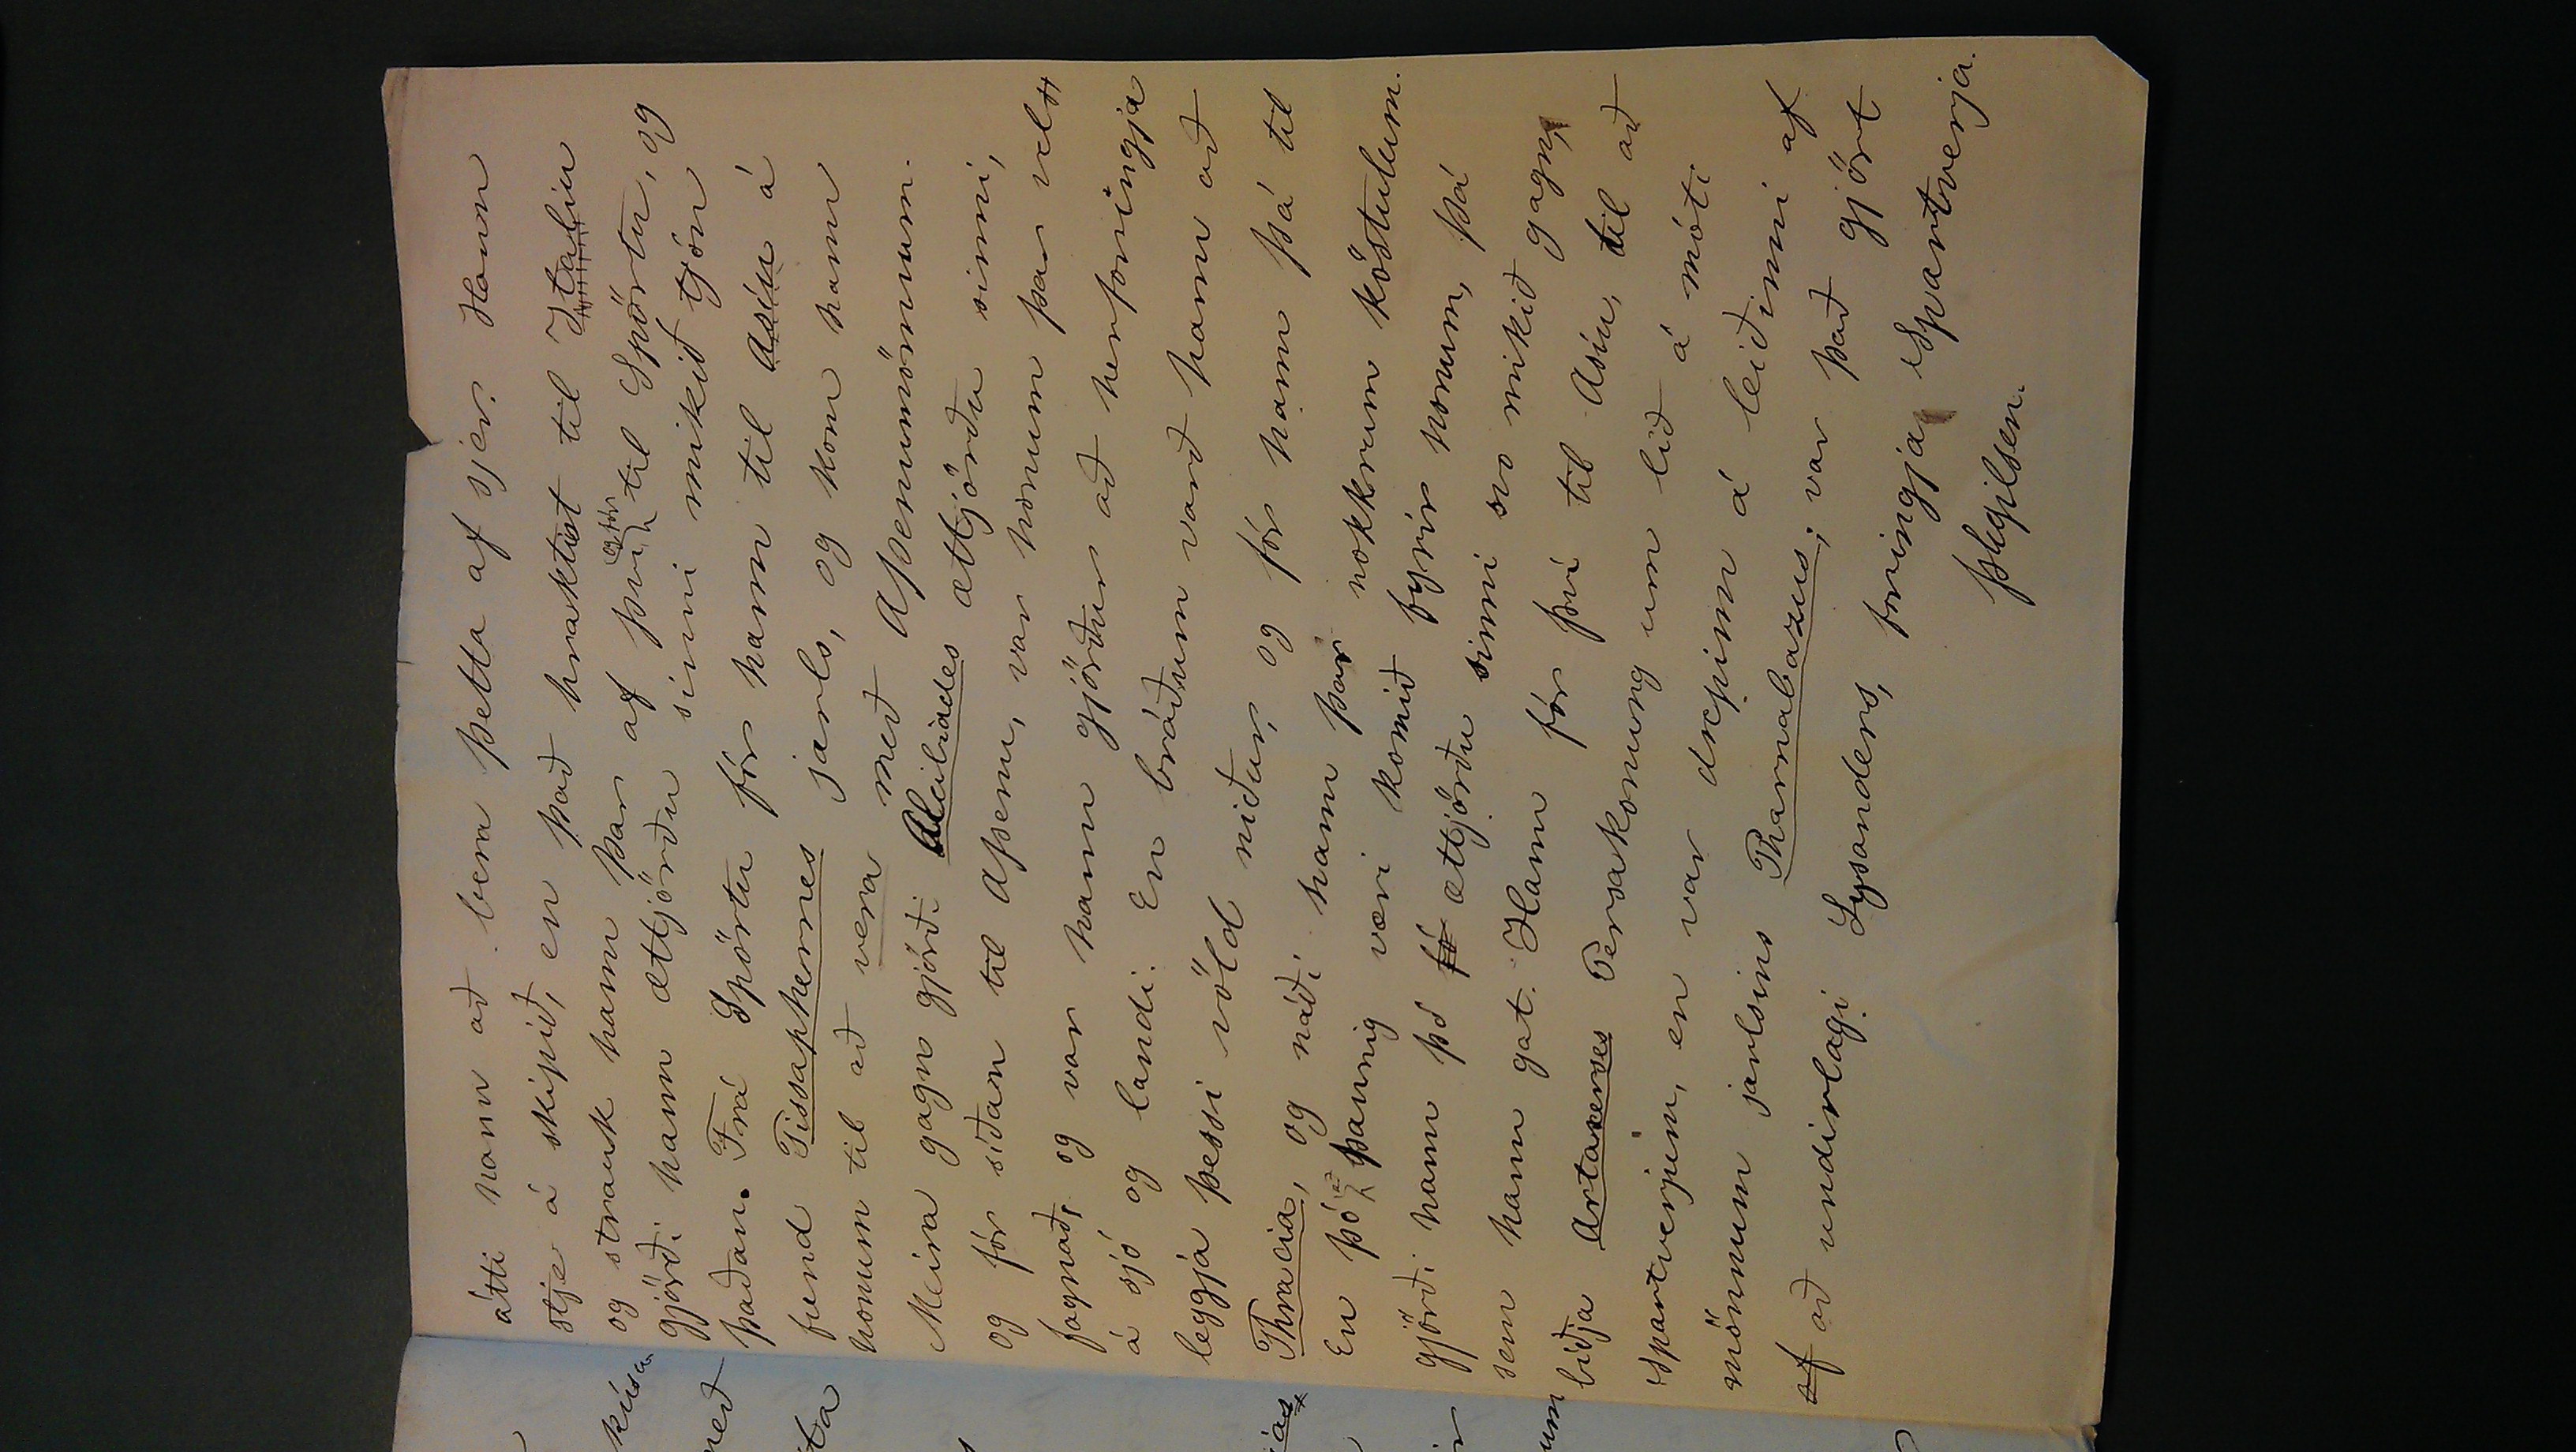 átti hann að bera þetta af sjer. Hann
stje á skipið, en það hraktist til Italiu
og strauk hann þar af því og fór til Spörtu, og
gjörði hann ættjörðu sinni mikið tjón
þaðan. Frá Spörtu fór hann til Asíu á
fund Tissaphernes jarls, og kom hann
honum til að vera með Aþenumönnum.
Meira gagn gjörði Alcibiades ættjörðu sinni,
og fór síðan til Aþenu, var honum þar vel
fagnað, og var hann gjörður að herforingja
á sjó og landi. En bráðum varð hann að
leggja þessi völd niður, og fór hann þá til
Thracia, og náði hann þar nokkrum köstulum.
En þó að þannig væri komið fyrir honum, þá
gjörði hann þó ættjörðu sinni svo mikið gagn,
sem hann gat. Hann fór því til Asíu, til að
biðja Artaxerxes Persakonung um lið á móti
Spartverjum, en var drepinn á leiðinni af
mönnum jarlsins Pharnabazus; var það gjört
af að undirlagi Lysanders, foringja Spartverja.
Þ Egilsen.
kúsa
með
ta
ias
um